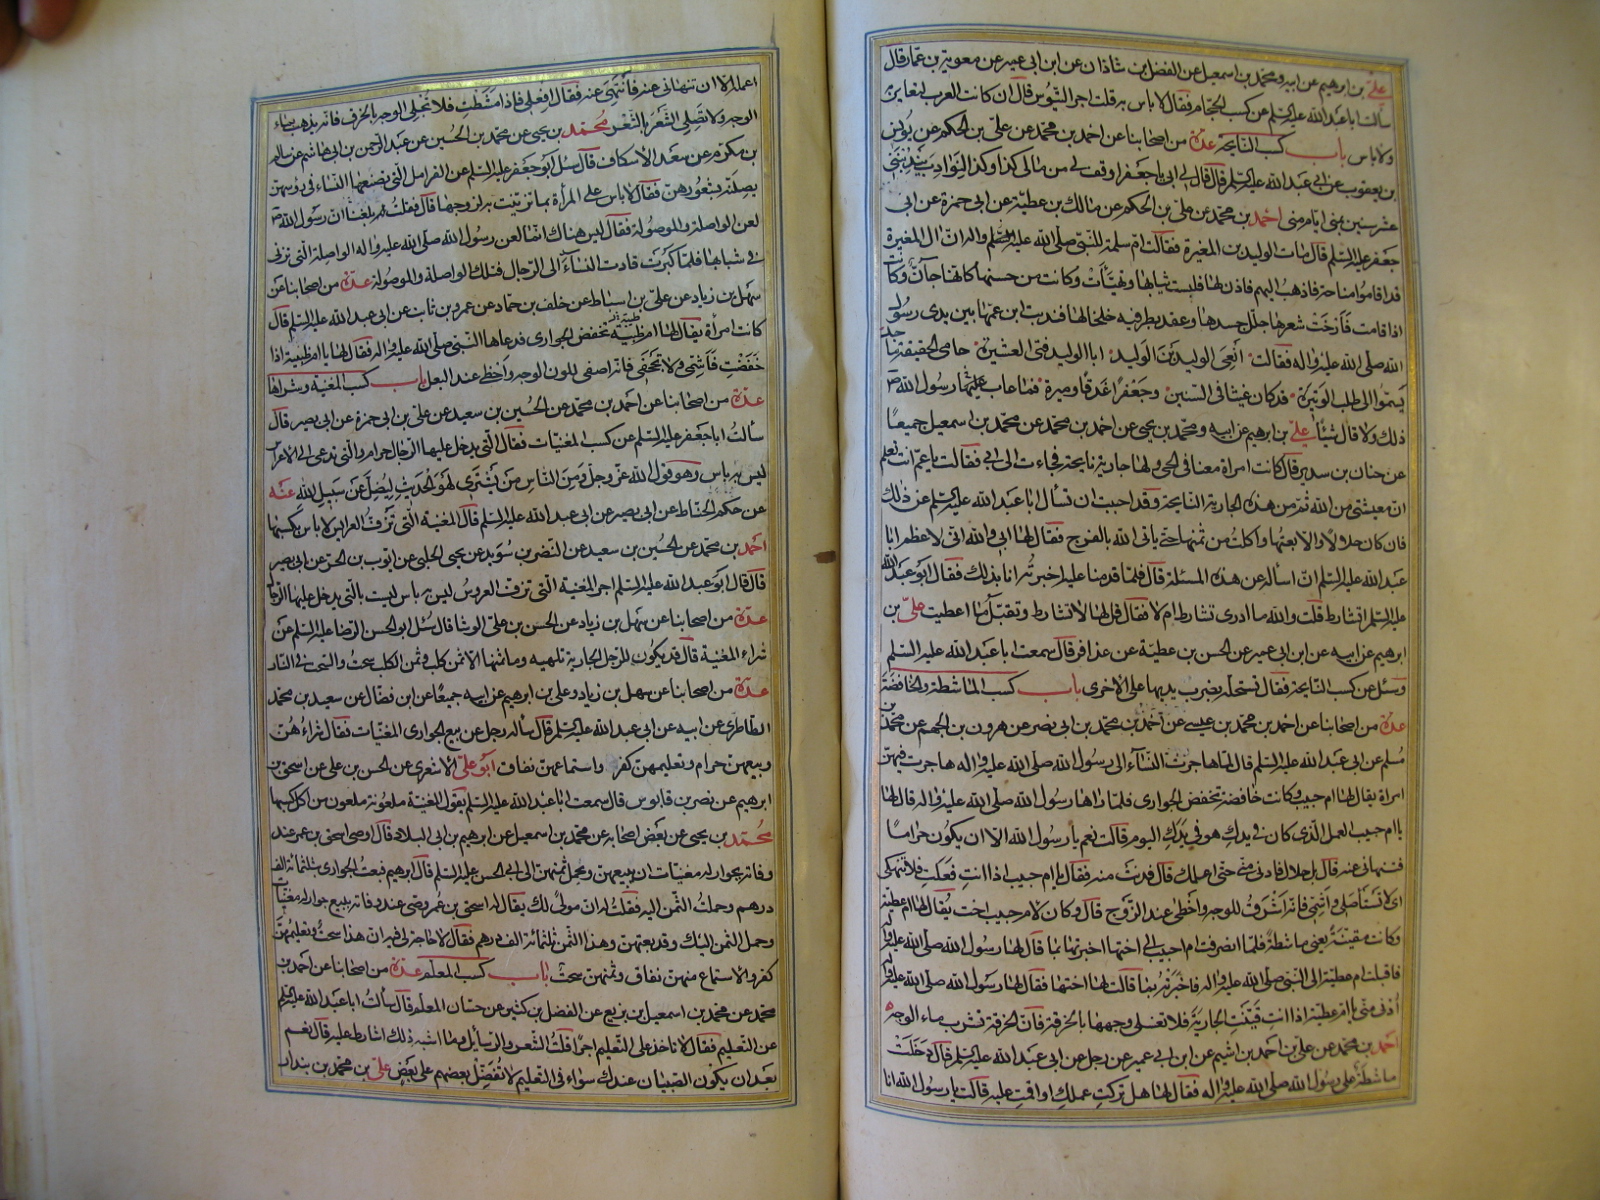 علي بن ابرهيم عن ابيه ومحمد بن اسمعيل عن الفضل بن شاذان عن ابن ابي عمير عن معوية بن عمار قال
سألت ابا عبد الله عليه السلم عن كسب الحجام فقال لا باس به قلت اجر التيوس قال ان كانت العرب لتعاير به
ولا باس باب كسب النايحة عدة من اصحابنا عن احمد بن محمد عن علي بن الحكم عن يونس
بن يعقوب عن ابي عبد الله عليه السلم قال قال لي ابي يا جعفر اوقف لي من مالي كذا وكذا لنوادب تندبني
عشر سنين بمنى ايام منى احمد بن محمد عن علي بن الحكم عن مالك بن عطية عن ابي حمزة عن ابي
جعفر عليه السلم قال مات الوليد بن المغيرة فقالت ام سلمة للنبي صلى الله عليه واله ان ال المغيرة
قد اقاموا مناحة فاذهب اليهم فاذن لها فلبست ثيابها وتهيأت وكانت من حسنها كانها جان وكانت
اذا قامت فارخت شعرها جلل جسدها وعقد بطرفيه خلخالها فندبت ابن عمها بين يدي رسول
الله صلى الله عليه واله فقالت انعى الوليد بن الوليد ابا الوليد فتى العشيرة حامي الحقيقة ماجد
يسموا الى طلب الوتيرة قد كان غيثا في السنين وجعفرا غدقا وميرة فما عاب عليها رسول الله ص
ذلك ولا قال شيئا علي بن ابرهيم عن ابيه ومحمد بن يحيى عن احمد بن محمد عن محمد بن اسمعيل جميعا
عن حنان بن سدير قال كانت امراة معنا في الحي ولها جارية نايحة فجاءت الى ابي فقالت يا عم انت تعلم
ان معيشتي من الله ثم من هذه الجارية النايحة وقد احببت ان تسأل ابا عبد الله عليه السلم عن ذلك
فان كان حلالا والا بعتها واكلت من ثمنها حتى ياتي الله بالفرج فقال لها ابي والله اني لاعظم ابا
عبد الله عليه السلم ان اساله عن هذه المسئلة قال فلما قدمنا عليه اخبرته انا بذلك فقال ابو عبد الله
عليه السلم اتشارط قلت والله ما ادري تشارط ام لا فقال قل لها لا تشارط وتقبل ما اعطيت علي بن
ابرهيم عن ابيه عن ابن ابي عمير عن الحسن بن عطية عن عذافر قال سمعت ابا عبد الله عليه السلم
وسئل عن كسب النايحة فقال تستحله بضرب يديها على الاخرى باب كسب الماشطة والخافضة
عدة من اصحابنا عن احمد بن محمد بن عيسى عن احمد بن محمد بن ابي نصر عن هرون بن الجهم عن محمد بن
مسلم عن ابي عبد الله عليه السلم قال لما هاجرت النساء الى رسول الله صلى الله عليه واله هاجرت فيهن
امراة يقال لها ام حبيب وكانت خافضة تخفض الجواري فلما راها رسول الله صلى الله عليه واله قال لها
يا ام حبيب العمل الذي كان في يدك هو في يدك اليوم قالت نعم يا رسول الله الا ان يكون حراما
فتنهاني عنه قال بل حلال فادني مني حتى اعلمك قال فدنت منه فقال يا ام حبيب اذا انت فعلت فلا تنهكي
اي لا تستاصلي واشمي فانه اشرق للوجه واحظى عند الزوج قال وكان لام حبيب اخت يقال لها ام عطية
وكانت مقينة يعني ماشطة فلما انصرفت ام حبيب الى اختها اخبرتها بما قال لها رسول الله صلى الله عليه واله
فاقبلت ام عطية الى النبي صلى الله عليه واله فاخبرته بما قالت لها اختها فقال لها رسول الله صلى الله عليه واله
ادني مني يا ام عطية اذا انت قينت الجارية فلا تغسلي وجهها بالخرقة فان الخرقة تشرب ماء الوجه
احمد بن محمد عن علي بن احمد بن اشيم عن ابن ابي عمير عن رجل عن ابي عبد الله عليه السلم قال دخلت
ماشطة على رسول الله صلى الله عليه واله فقال لها هل تركت عملك او اقمت عليه قالت يا رسول الله انا
اعمله الا ان تنهاني عنه فانتهي عنه فقال افعلي فاذا مشطت فلا تجلي الوجه بالخرق فانه يذهب بماء
الوجه ولا تصلي الشعر بالشعر محمد بن يحيى عن محمد بن الحسين عن عبد الرحمن بن ابي هاشم عن سالم
بن مكرم عن سعد الاسكاف قال سئل ابو جعفر عليه السلم عن القرامل التي تصنعها النساء في رؤسهن
يصلنه بشعورهن فقال لا باس على المرأة بما تزينت به لزوجها قال فقلت له بلغنا ان رسول الله ص
لعن الواصلة والموصولة فقال ليس هناك انما لعن رسول الله صلى الله عليه واله الواصلة التي تزني
في شبابها فلما كبرت قادت النساء الى الرجال فتلك الواصلة والموصولة عدة من اصحابنا عن
سهل بن زياد عن علي بن اسباط عن خلف بن حماد عن عمرو بن ثابت عن ابي عبد الله عليه السلم قال
كانت امرأة يقال لها ام ظبية تخفض الجواري فدعاها النبي صلى الله عليه واله فقال لها يا ام ظبية اذا
خفضت فاشمي ولا تجحفي فانه اصفى للون الوجه واحظى عند البعل باب كسب المغنية وشراها
عدة من اصحابنا عن احمد بن محمد عن الحسين بن سعيد عن علي بن ابي حمزة عن ابي بصير قال
سألت ابا جعفر عليه السلم عن كسب المغنيات فقال التي يدخل عليها الرجال حرام والتي تدعى الى الاعراس
ليس به باس وهو قول الله عز وجل ومن الناس من يشتري لهو الحديث ليضل عن سبيل الله عنه
عن حكم الخياط عن ابي بصير عن ابي عبد الله عليه السلم قال المغنية التي تزف العرايس لا باس بكسبها
احمد بن محمد عن الحسين بن سعيد عن النضر بن سويد عن يحيى الحلبي عن ايوب بن الحر عن ابي بصير
قال قال ابو عبد الله عليه السلم اجر المغنية التي تزف العروس ليس به باس ليست بالتي يدخل عليها الرجال
عدة من اصحابنا عن سهل بن زياد عن الحسن بن علي الوشا قال سئل ابو الحسن الرضا عليه السلم عن
شراء المغنية قال قد يكون للرجل الجارية تلهيه وما ثمنها الا ثمن كلب وثمن الكلب سحت والسحت في النار
عدة من اصحابنا عن سهل بن زياد وعلي بن ابرهيم عن ابيه جميعا عن ابن فضال عن سعيد بن محمد
الطاطري عن ابيه عن ابي عبد الله عليه السلم قال ساله رجل عن بيع الجواري المغنيات فقال شراؤهن
وبيعهن حرام وتعليمهن كفر واستماعهن نفاق ابو علي الاشعري عن الحسن بن علي عن اسحق بن
ابرهيم عن نصر بن قابوس قال سمعت ابا عبد الله عليه السلم يقول المغنية ملعونة ملعون من اكل كسبها
محمد بن يحيى عن بعض اصحابه عن محمد بن اسمعيل عن ابرهيم بن ابي البلاد قال اوصى اسحق بن عمر عند
وفاته بجوار له مغنيات ان يبيعهن ويحمل ثمنهن الى ابي الحسن عليه السلم قال ابرهيم فبعت الجواري بثلثمائة الف
درهم وحملت الثمن اليه فقلت له ان مولى لك يقال له اسحق بن عمر وصى عند وفاته ببيع جوار له مغنيات
وحمل الثمن اليك وقد بعتهن وهذا الثمن ثلثمائة الف درهم فقال لا حاجة لي فيه ان هذا سحت وتعليمهن
كفر والاستماع منهن نفاق وثمنهن سحت باب كسب المعلم عدة من اصحابنا عن احمد بن
محمد عن محمد بن اسمعيل بن بزيع عن الفضل بن كثير عن حسان المعلم قال سألت ابا عبد الله عليه السلم
عن التعليم فقال لا تاخذ على التعليم اجرا قلت الشعر والرسايل وما اشبه ذلك اشارط عليه قال نعم
بعد ان يكون الصبيان عندك سواء في التعليم لا تفضل بعضهم على بعض علي بن محمد بن بندار